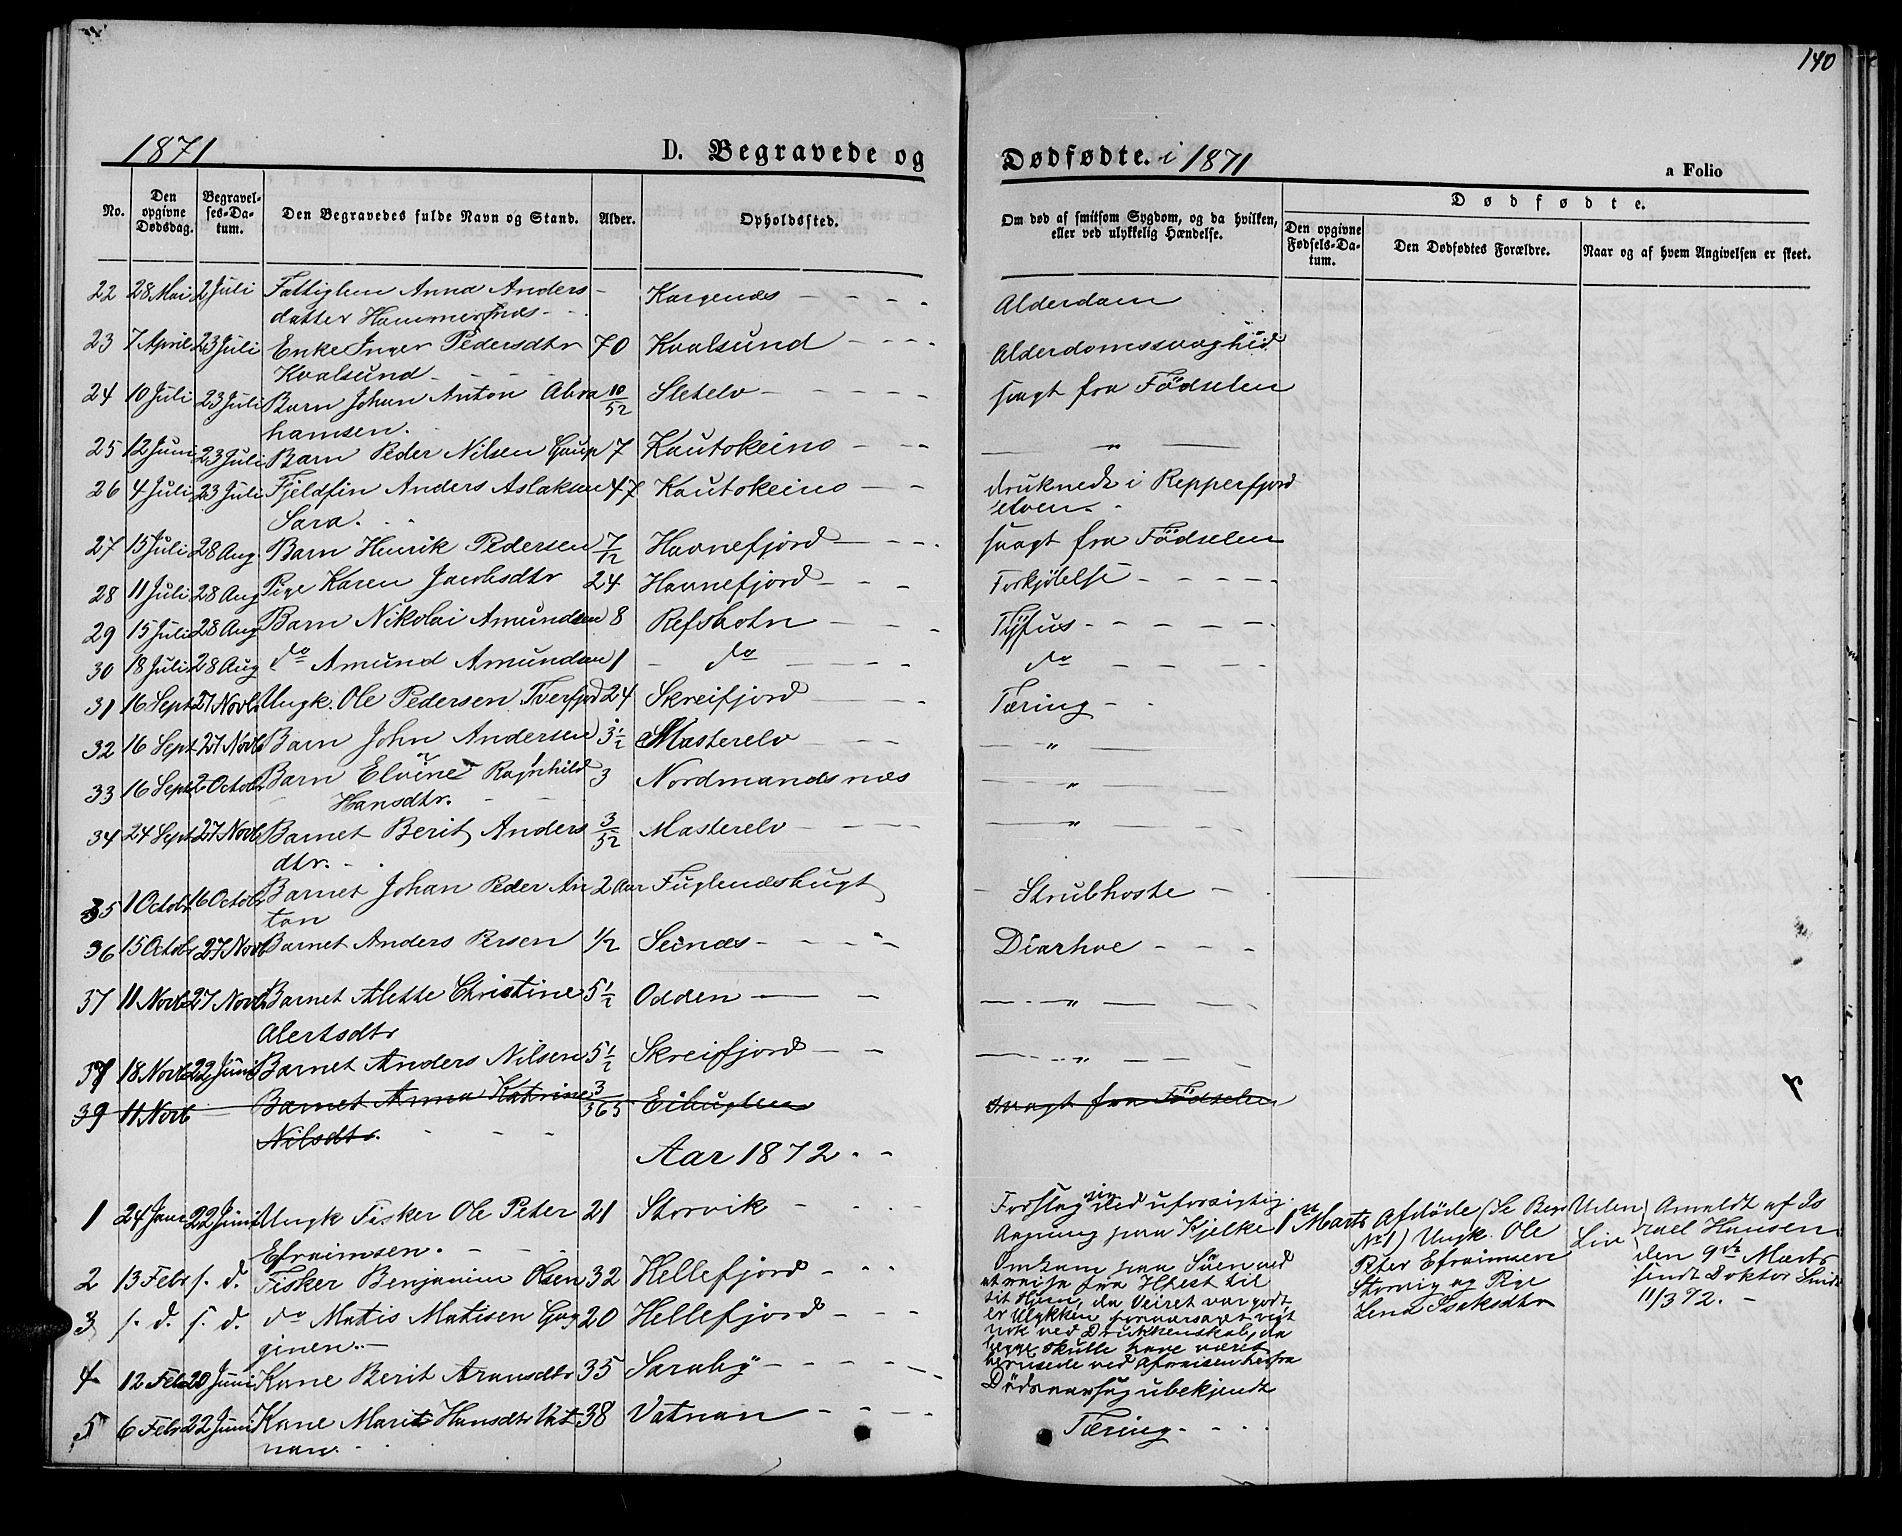 140
1871 D. Begravede og Dødfødte. i 1871 a Folio
No. Den opgivne Dødsdag. Begravelses-Datum. Den Begravedes fulde Navn og Stand. Alder. Opholdssted. Om død af smitsom Sygdom, og da hvilken, eller ved ulykkelig Hændelse. Dødfødte. Den opgivne Fødsels-Datum. Den Dødfødtes Forældre. Naar og af hvem Angivelsen er skeet.
22 28 Mai 2 Juli Fattiglem Anna Anders - Kargenæs - - - - Alderdom
datter Hammerfnæs - -
23 7 April 23 Juli Enke Inger Pedersdtr 70 Kvalsund - - - - Alderdomssvaghed
Kvalsund - - -
24 10 Juli 23 Juli Barn Johan Anton Abra 10/52 Sletelv - - - - svagt fra Fødselen
hamsen.
25 12 Juni 23 Juli Barn Peder Nilsen Gaup 7 Kautokeino - - - — " —
26 4 Juli 23 Juli Fjeldfin Anders Aslaksen 47 Kautokeino - - druknede i Repperfjord
Sara. elven -
27 15 Juli 28 Aug. Barn Henrik Pedersen 7/12 Havnefjord - - - svagt fra Fødselen
28 11 Juli 28 Aug Pige Karen Jacobsdtr 24 Havnefjord - - - Forkjølelse - - - -
29 15 Juli 28 Aug Barn Nikolai Amundsen 8 Refsbotn - - - Tyfus - - - - -
30 18 Juli 28 Aug do Amund Amundsen 1 - do - - do - - -
31 16 Sept 27 Novb Ungk. Ole Pedersen Tverfjord 24 Skreifjord - - Tæring - -
32 16 Sept 27 Novb Barn John Andersen 3 1/2 Masterelv - - — " —
33 16 Sept 2 Octob Barn Elvine Ragnhild 3 Nordmandsnæs — " —
Hansdtr. - -
34 24 Sept 27 Novb Barnet Berit Anders 3/52 Masterelv - - — " —
dtr. - -
35 1 Octob 16 Octob Barnet Johan Peder An 2 Aar Fuglenæsbugt - Strubhoste -
ton
36 15 Octob 27 Novb Barnet Anders Persen 1/2 Seinæs - - - - Diarhoe - - -
37 11 Novb 27 Novb Barnet Alette Christine 5 1/2 Odden - - — " —
Alertsdtr
38 18 Novb 22 Juni Barnet Anders Nilsen 5 1/2 Skreifjord - - — " —
39 11 Novb Barnet Anna Katrine 3/365 Eibugten svagt fra Fødselen
Nilsdtr. - - -
Aar 1872. - -
1 24 Janr 22 Juni Ungk Fisker Ole Peter 21 Storvik - - - Forslog sig ved uforsigtig
Efraimsen. - - - Aagning paa Kjelke
2 13 Febr s. d. Fisker Benjamin Olsen 32 Hellefjord - - -
3 s. d. s. d. do Matis Matisen Gug 20 Hellefjord - - -
ginen. -
Omkom paa Søen ved
at reise fra Htest til
sit Hjem, da Veiret var godt
er Ulykken foraarsaget vist
nok ved Drukkenskab, da
begge skulle have været
berusede ved Afreisen herfra
4 12 Feb 22 Juni Kone Berit Aransdtr 35 Saraby - - - - Dødsaarsag ubekjendt
5 6 Febr 22 Juni Kone Marit Hansdtr Vat 38 Vatnan - - - Tæring - - -
nan. -
1ste Marts Afdøde (se Beg
No 1) Ungk. Ole
Peter Efraimsen
Storvig og Pige
Lena Isaksdtr
Uden
Liv
Anmeldt af Is
rael Hansen
den 9de Marts
sendt Doktor
11/3 72. -